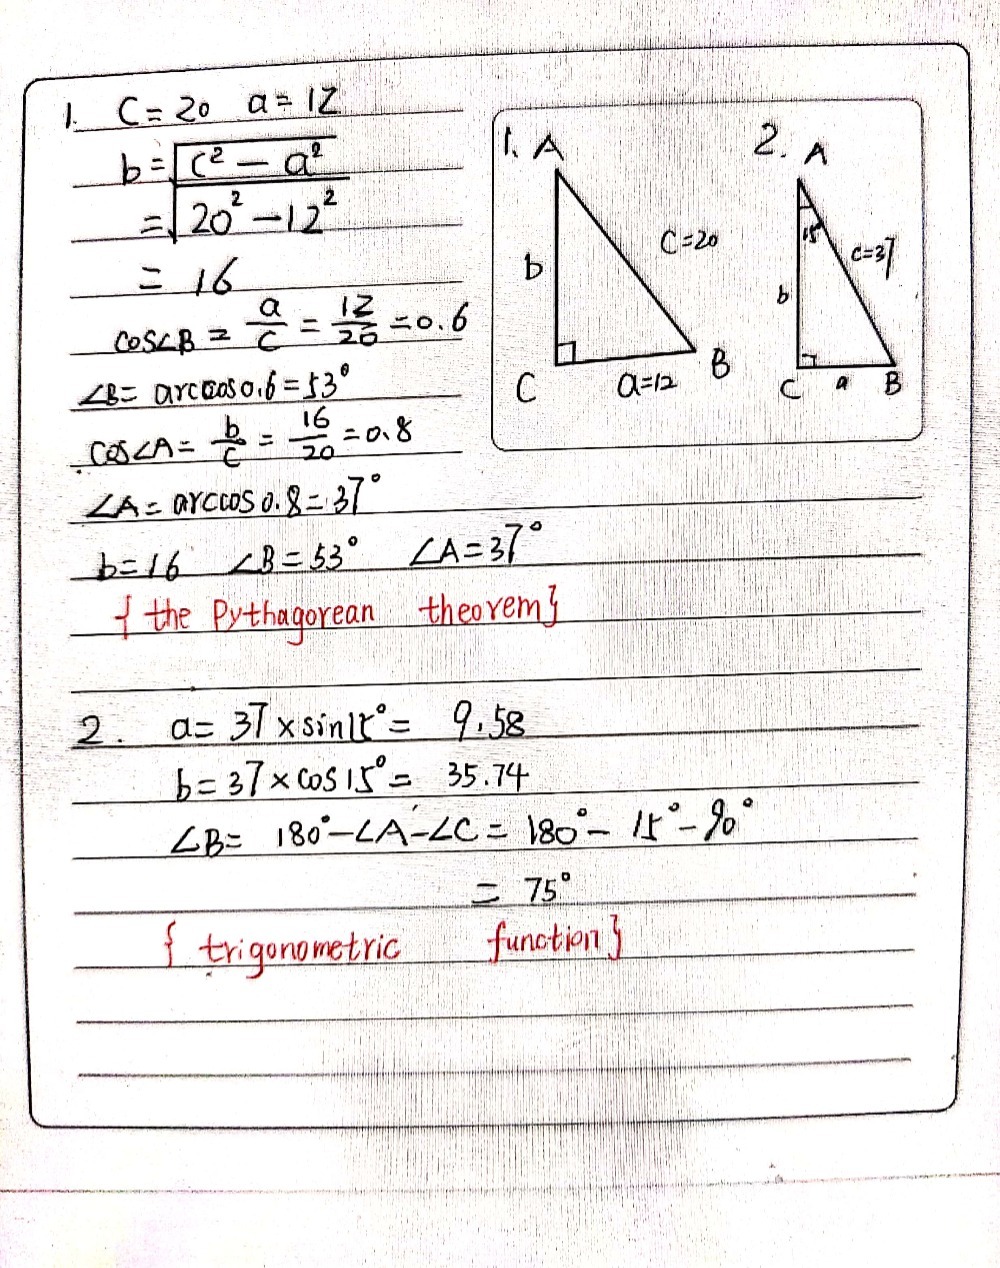 1. C=20 a=12
b=√c²-a²
=√20²-12²
= 16
cos∠B = a/c = 12/20 =0.6
∠B= arccos0.6=53°
cos∠A= b/c = 16/20 =0.8
∠A=arccos0.8=37°
b=16 ∠B=53° ∠A=37°
{the Pythagorean theorem}
1. A
b
C=20
C
a=12
B
2. A
15°
c=37
b
C
a
B
2. a= 37×sin15°= 9.58
b=37×cos15°= 35.74
∠B= 180°-∠A-∠C= 180°- 15°-90°
= 75°
{trigonometric function}